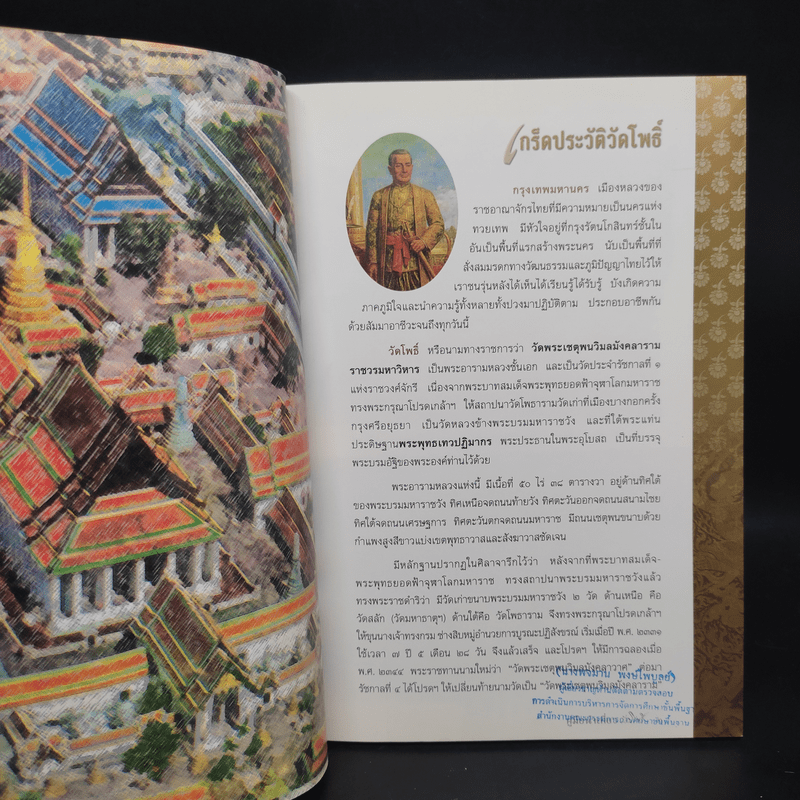 เกร็ดประวัติวัดโพธิ์
กรุงเทพมหานคร เมืองหลวงของ
ราชอาณาจักรไทยที่มีความหมายเป็นนครแห่ง
ทวยเทพ มีหัวใจอยู่ที่กรุงรัตนโกสินทร์ชั้นใน
อันเป็นพื้นที่แรกสร้างพระนคร นับเป็นพื้นที่ที่
สั่งสมมรดกทางวัฒนธรรมและภูมิปัญญาไทยไว้ให้
เราชนรุ่นหลังได้เห็นได้เรียนรู้ได้รับรู้ บังเกิดความ
ภาคภูมิใจและนำความรู้ทั้งหลายทั้งปวงมาปฏิบัติตาม ประกอบอาชีพกัน
ด้วยสัมมาอาชีวะจนถึงทุกวันนี้
วัดโพธิ์ หรือนามทางราชการว่า วัดพระเชตุพนวิมลมังคลาราม
ราชวรมหาวิหาร เป็นพระอารามหลวงชั้นเอก และเป็นวัดประจำรัชกาลที่ ๑
แห่งราชวงศ์จักรี เนื่องจากพระบาทสมเด็จพระพุทธยอดฟ้าจุฬาโลกมหาราช
ทรงพระกรุณาโปรดเกล้าฯ ให้สถาปนาวัดโพธารามวัดเก่าที่เมืองบางกอกครั้ง
กรุงศรีอยุธยา เป็นวัดหลวงข้างพระบรมมหาราชวัง และที่ใต้พระแท่น
ประดิษฐานพระพุทธเทวปฏิมากร พระประธานในพระอุโบสถ เป็นที่บรรจุ
พระบรมอัฐิของพระองค์ท่านไว้ด้วย
พระอารามหลวงแห่งนี้ มีเนื้อที่ ๕๐ ไร่ ๓๘ ตารางวา อยู่ด้านทิศใต้
ของพระบรมมหาราชวัง ทิศเหนือจดถนนท้ายวัง ทิศตะวันออกจดถนนสนามไชย
ทิศใต้จดถนนเศรษฐการ ทิศตะวันตกจดถนนมหาราช มีถนนเชตุพนขนาบด้วย
กำแพงสูงสีขาวแบ่งเขตพุทธาวาสและสังฆาวาสชัดเจน
มีหลักฐานปรากฏในศิลาจารึกไว้ว่า หลังจากที่พระบาทสมเด็จ-
พระพุทธยอดฟ้าจุฬาโลกมหาราช ทรงสถาปนาพระบรมมหาราชวังแล้ว
ทรงพระราชดำริว่า มีวัดเก่าขนาบพระบรมมหาราชวัง ๒ วัด ด้านเหนือ คือ
วัดสลัก (วัดมหาธาตุฯ) ด้านใต้คือ วัดโพธาราม จึงทรงพระกรุณาโปรดเกล้าฯ
ให้ขุนนางเจ้าทรงกรม ช่างสิบหมู่อำนวยการบูรณะปฏิสังขรณ์ เริ่มเมื่อปี พ.ศ. ๒๓๓๑
ใช้เวลา ๗ ปี ๕ เดือน ๒๘ วัน จึงแล้วเสร็จ และโปรดฯ ให้มีการฉลองเมื่อ
พ.ศ. ๒๓๔๔ พระราชทานนามใหม่ว่า "วัดพระเชตุพนวิมลมังคลาวาศ" ต่อมา
รัชกาลที่ ๔ ได้โปรดฯ ให้เปลี่ยนท้ายนามวัดเป็น "วัดพระเชตุพนวิมลมังคลาราม"
(นางพจมาน พงษ์ไพบูลย์)